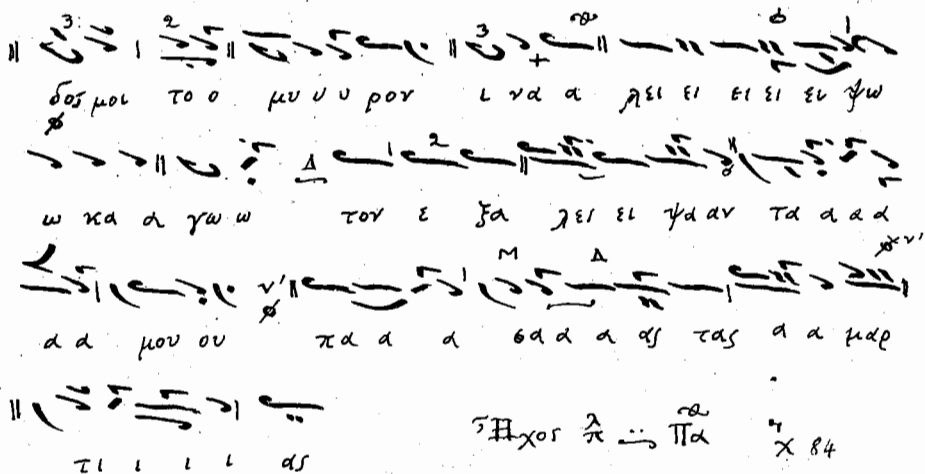 δός μοι το ο μυ υ υ ρον ι να α α λει ει ει ει ει ψω
ω κα α γω ω τον ε ξα λει ει ψα αν τα α α α
α α μου ου πα α α σα α α ας τας α α μαρ
τι ι ι ι ας
Ἦχος λ π Πα χ 84